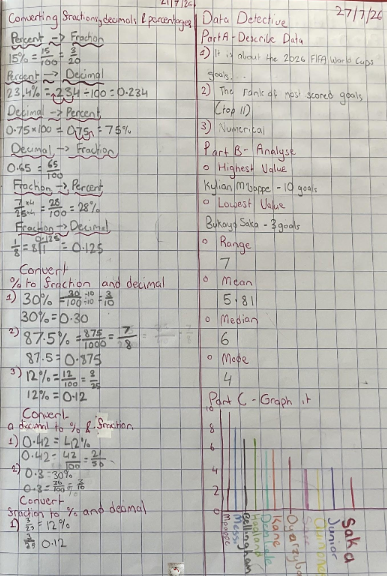 21/7/26
Converting fractions, decimals & percentages
Percent → Fraction
15% = 15/100 = 3/20
Percent → Decimal
23.4% = 234 ÷ 100 = 0.234
Decimal → Percent
0.75 x 100 = 075 = 75%
Decimal → Fraction
0.65 = 65/100
Fraction → Percent
7/25 = 28/100 = 28%
Fraction → Decimal
1/8 = 8⟌1 = 0.125
Convert
% to fraction and decimal
1) 30% = 30/100 ÷10 ÷10 = 3/10
30% = 0.30
2) 87.5% = 875/1000 = 7/8
87.5 = 0.875
3) 12% = 12/100 = 3/25
12% = 0.12
Convert
a decimal to % & fraction
1) 0.42 = 42%
0.42 = 42/100 = 21/50
2) 0.3 = 30%
Convert
fraction to % and decimal
1) 3/25 = 12%
3/25 0.12
27/7/26
Data Detective
Part A - Describe Data
1) It is about the 2026 FIFA World Cups
goals...
2) The rank of most scored goals
(Top 11)
3) Numerical
Part B - Analyse
Highest Value
Kylian Mbappe - 10 goals
Lowest Value
Bukayo Saka - 3 goals
Range
7
Mean
5.81
Median
6
Mode
4
Part C - Graph it
10
8
6
4
2
0
Mbappe
Messi
Bellingham
Haaland
Dembele
Kane
Oyarzabal
Junior
Saka